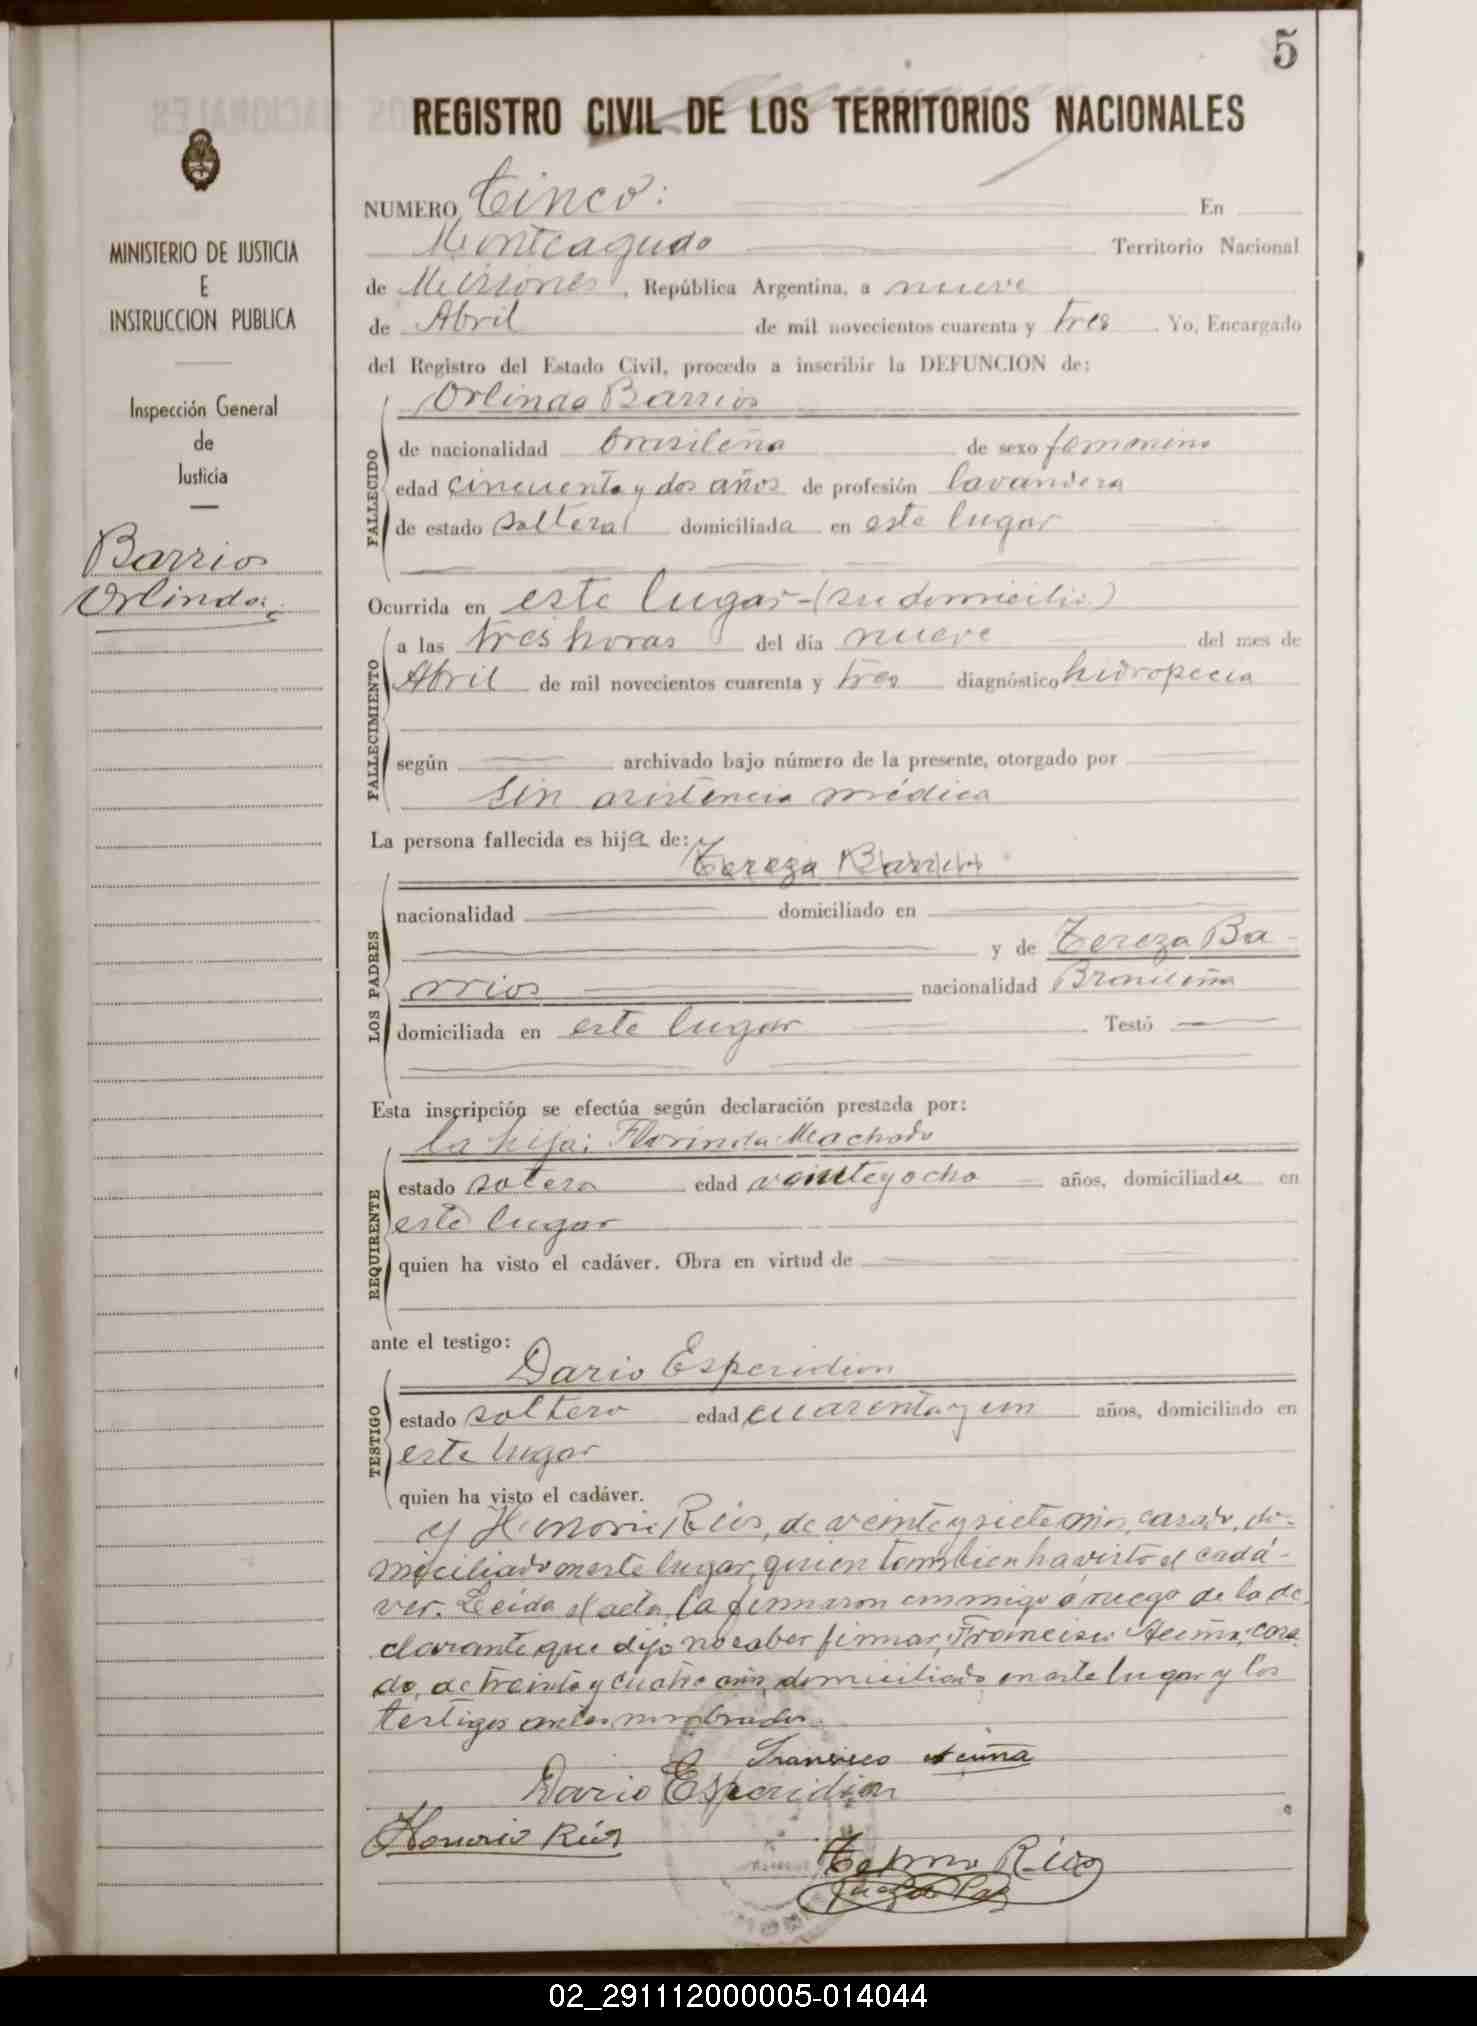 5
REGISTRO CIVIL DE LOS TERRITORIOS NACIONALES
MINISTERIO DE JUSTICIA
E
INSTRUCCION PUBLICA
Inspección General
de
Justicia
Barrios
Orlinda:
NUMERO Cinco: En
Monteagudo Territorio Nacional
de Misiones, República Argentina, a nueve
de Abril de mil novecientos cuarenta y tres. Yo, Encargado
del Registro del Estado Civil, procedo a inscribir la DEFUNCION de:
FALLECIDO
Orlinda Barrios
de nacionalidad brasileña de sexo femenino
edad cincuenta y dos años de profesión lavandera
de estado soltera domiciliada en este lugar
Ocurrida en este lugar-(su domicilio)
FALLECIMIENTO
a las tres horas del día nueve del mes de
Abril de mil novecientos cuarenta y tres diagnóstico hidropecia
según archivado bajo número de la presente, otorgado por
sin asistencia médica
La persona fallecida es hija de:
LOS PADRES
Tereza Barrios
nacionalidad domiciliado en
y de Tereza Ba-
rrios nacionalidad Brasileña
domiciliada en este lugar Testó
Esta inscripción se efectúa según declaración prestada por:
REQUIRENTE
la hija: Florinda Machado
estado sotera edad veinteyocho años, domiciliada en
este lugar
quien ha visto el cadáver. Obra en virtud de
ante el testigo:
TESTIGO
Dario Esperidion
estado soltero edad cuarenta y un años, domiciliado en
este lugar
quien ha visto el cadáver.
y Honorio Rios, de veinte y siete años, casado, do-
miciliado en este lugar, quien tambien ha visto el cadá-
ver. Leída el acta, la firmaron conmigo á ruego de la de
clarante que dijo no saber firmar, Francisco Acuña, casa
do, de treinta y cuatro años, domiciliado en este lugar y los
testigos antes nombrados.
Francisco Acuña
Dario Esperidion
Honorio Rios
Rios
Juez de Paz
02_291112000005-014044